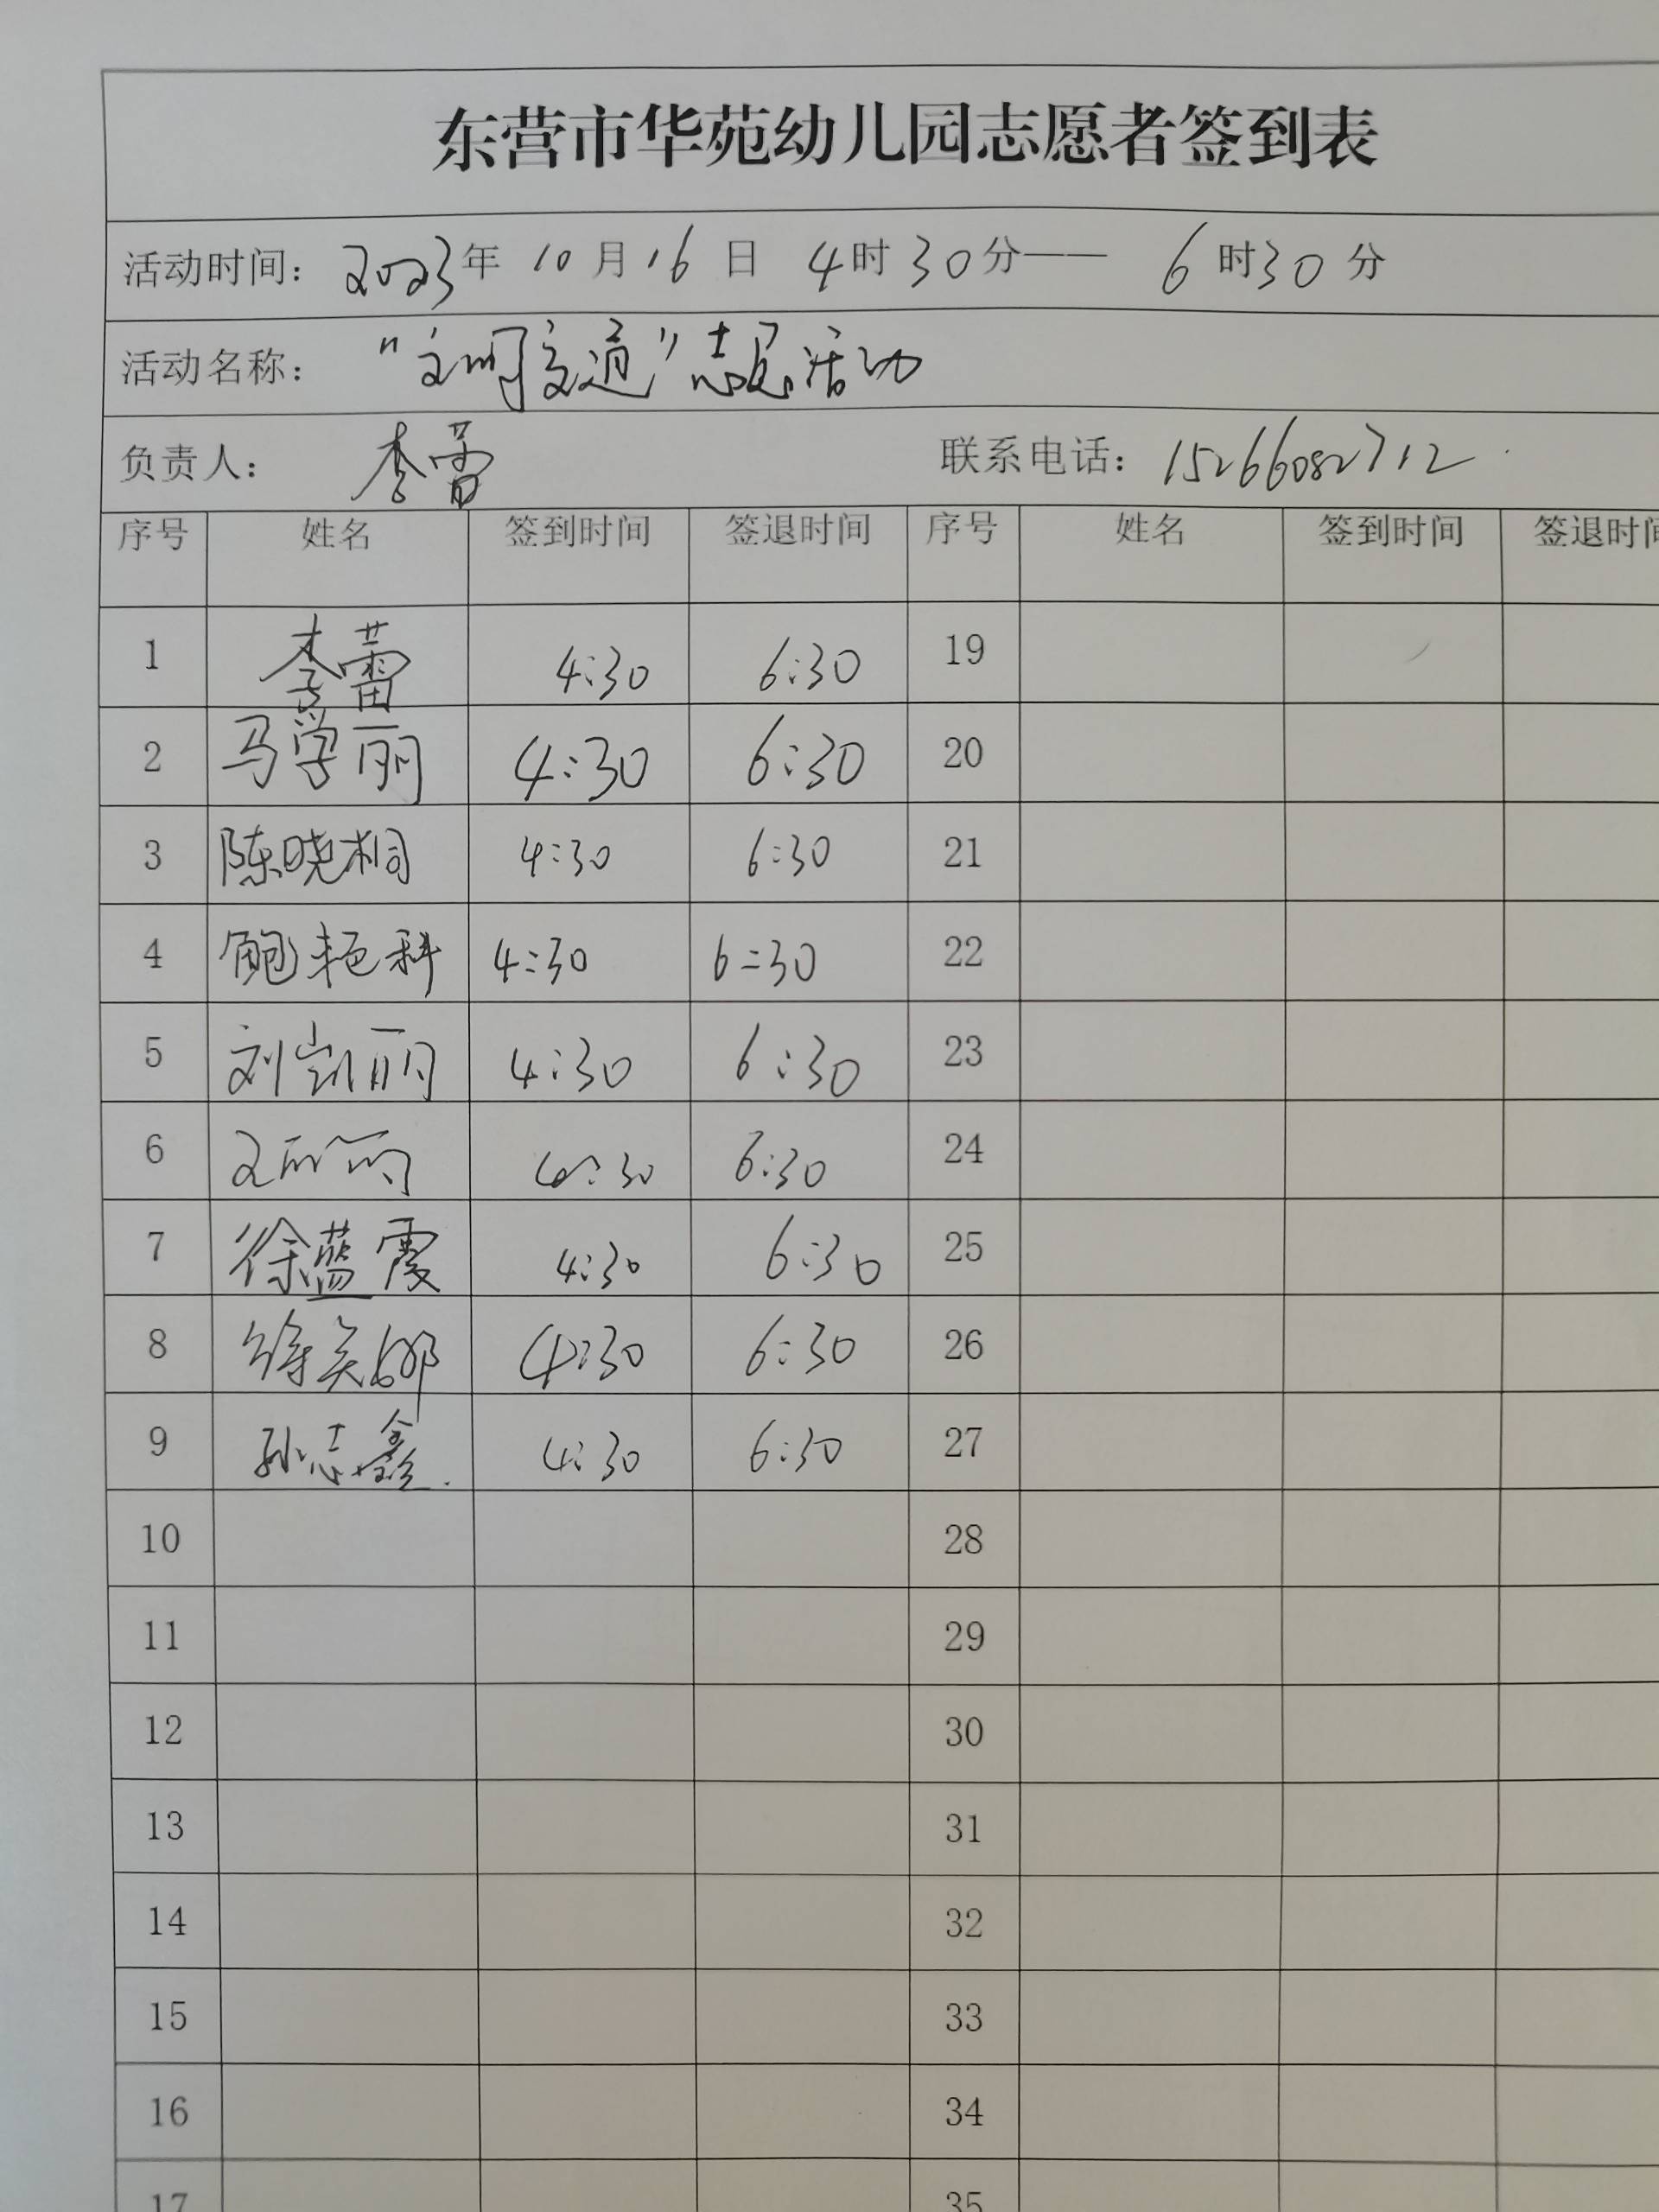 东营市华苑幼儿园志愿者签到表
活动时间: 2023年 10月16日 4时30分—— 6时30分
活动名称: “文明交通”志愿活动
负责人: 李蕾 联系电话: 15266082712
序号 姓名 签到时间 签退时间 序号 姓名 签到时间 签退时
1 李蕾 4:30 6:30 19
2 马学丽 4:30 6:30 20
3 陈晓桐 4:30 6:30 21
4 鲍艳科 4:30 6:30 22
5 刘凯丽 4:30 6:30 23
6 4:30 6:30 24
7 徐蓝霞 4:30 6:30 25
8 徐美娜 4:30 6:30 26
9 孙志鑫. 4:30 6:30 27
10 28
11 29
12 30
13 31
14 32
15 33
16 34
17 35